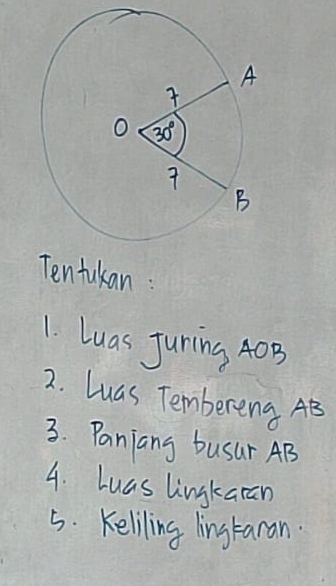 A
7
O 30°
7
B
Tentukan :
1. Luas Juring AOB
2. Luas Tembereng AB
3. Panjang busur AB
4. Luas lingkaran
5. Keliling lingkaran.